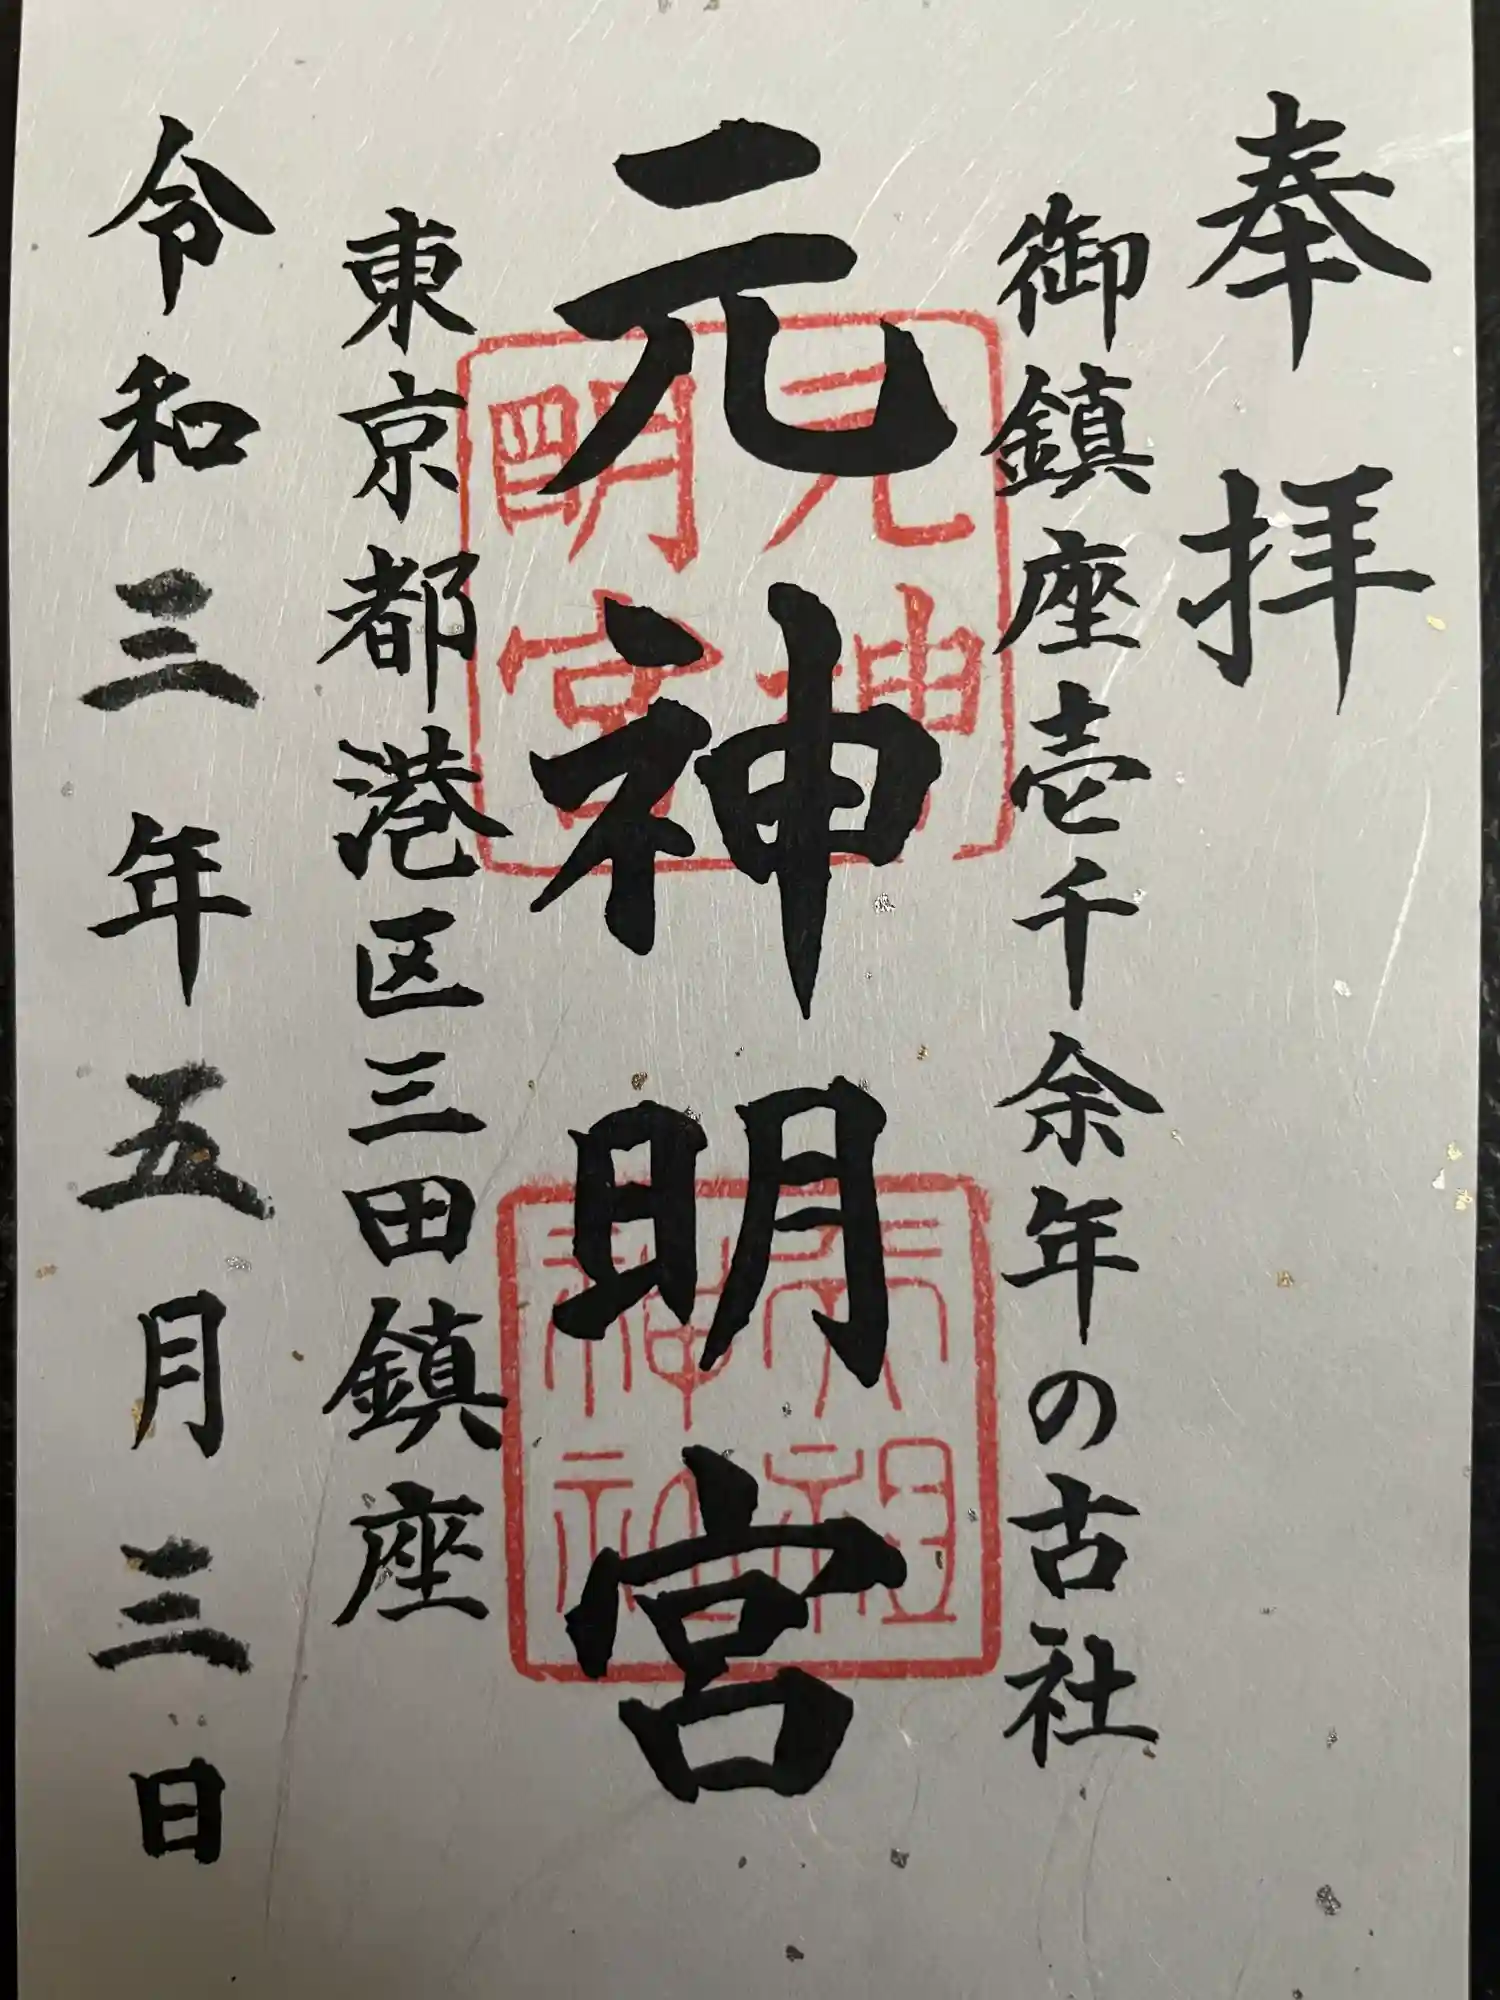 奉拝
御鎮座壱千余年の古社
元神明宮
東京都港区三田鎮座
令和三年五月三日
元神
明宮
天祖
神社